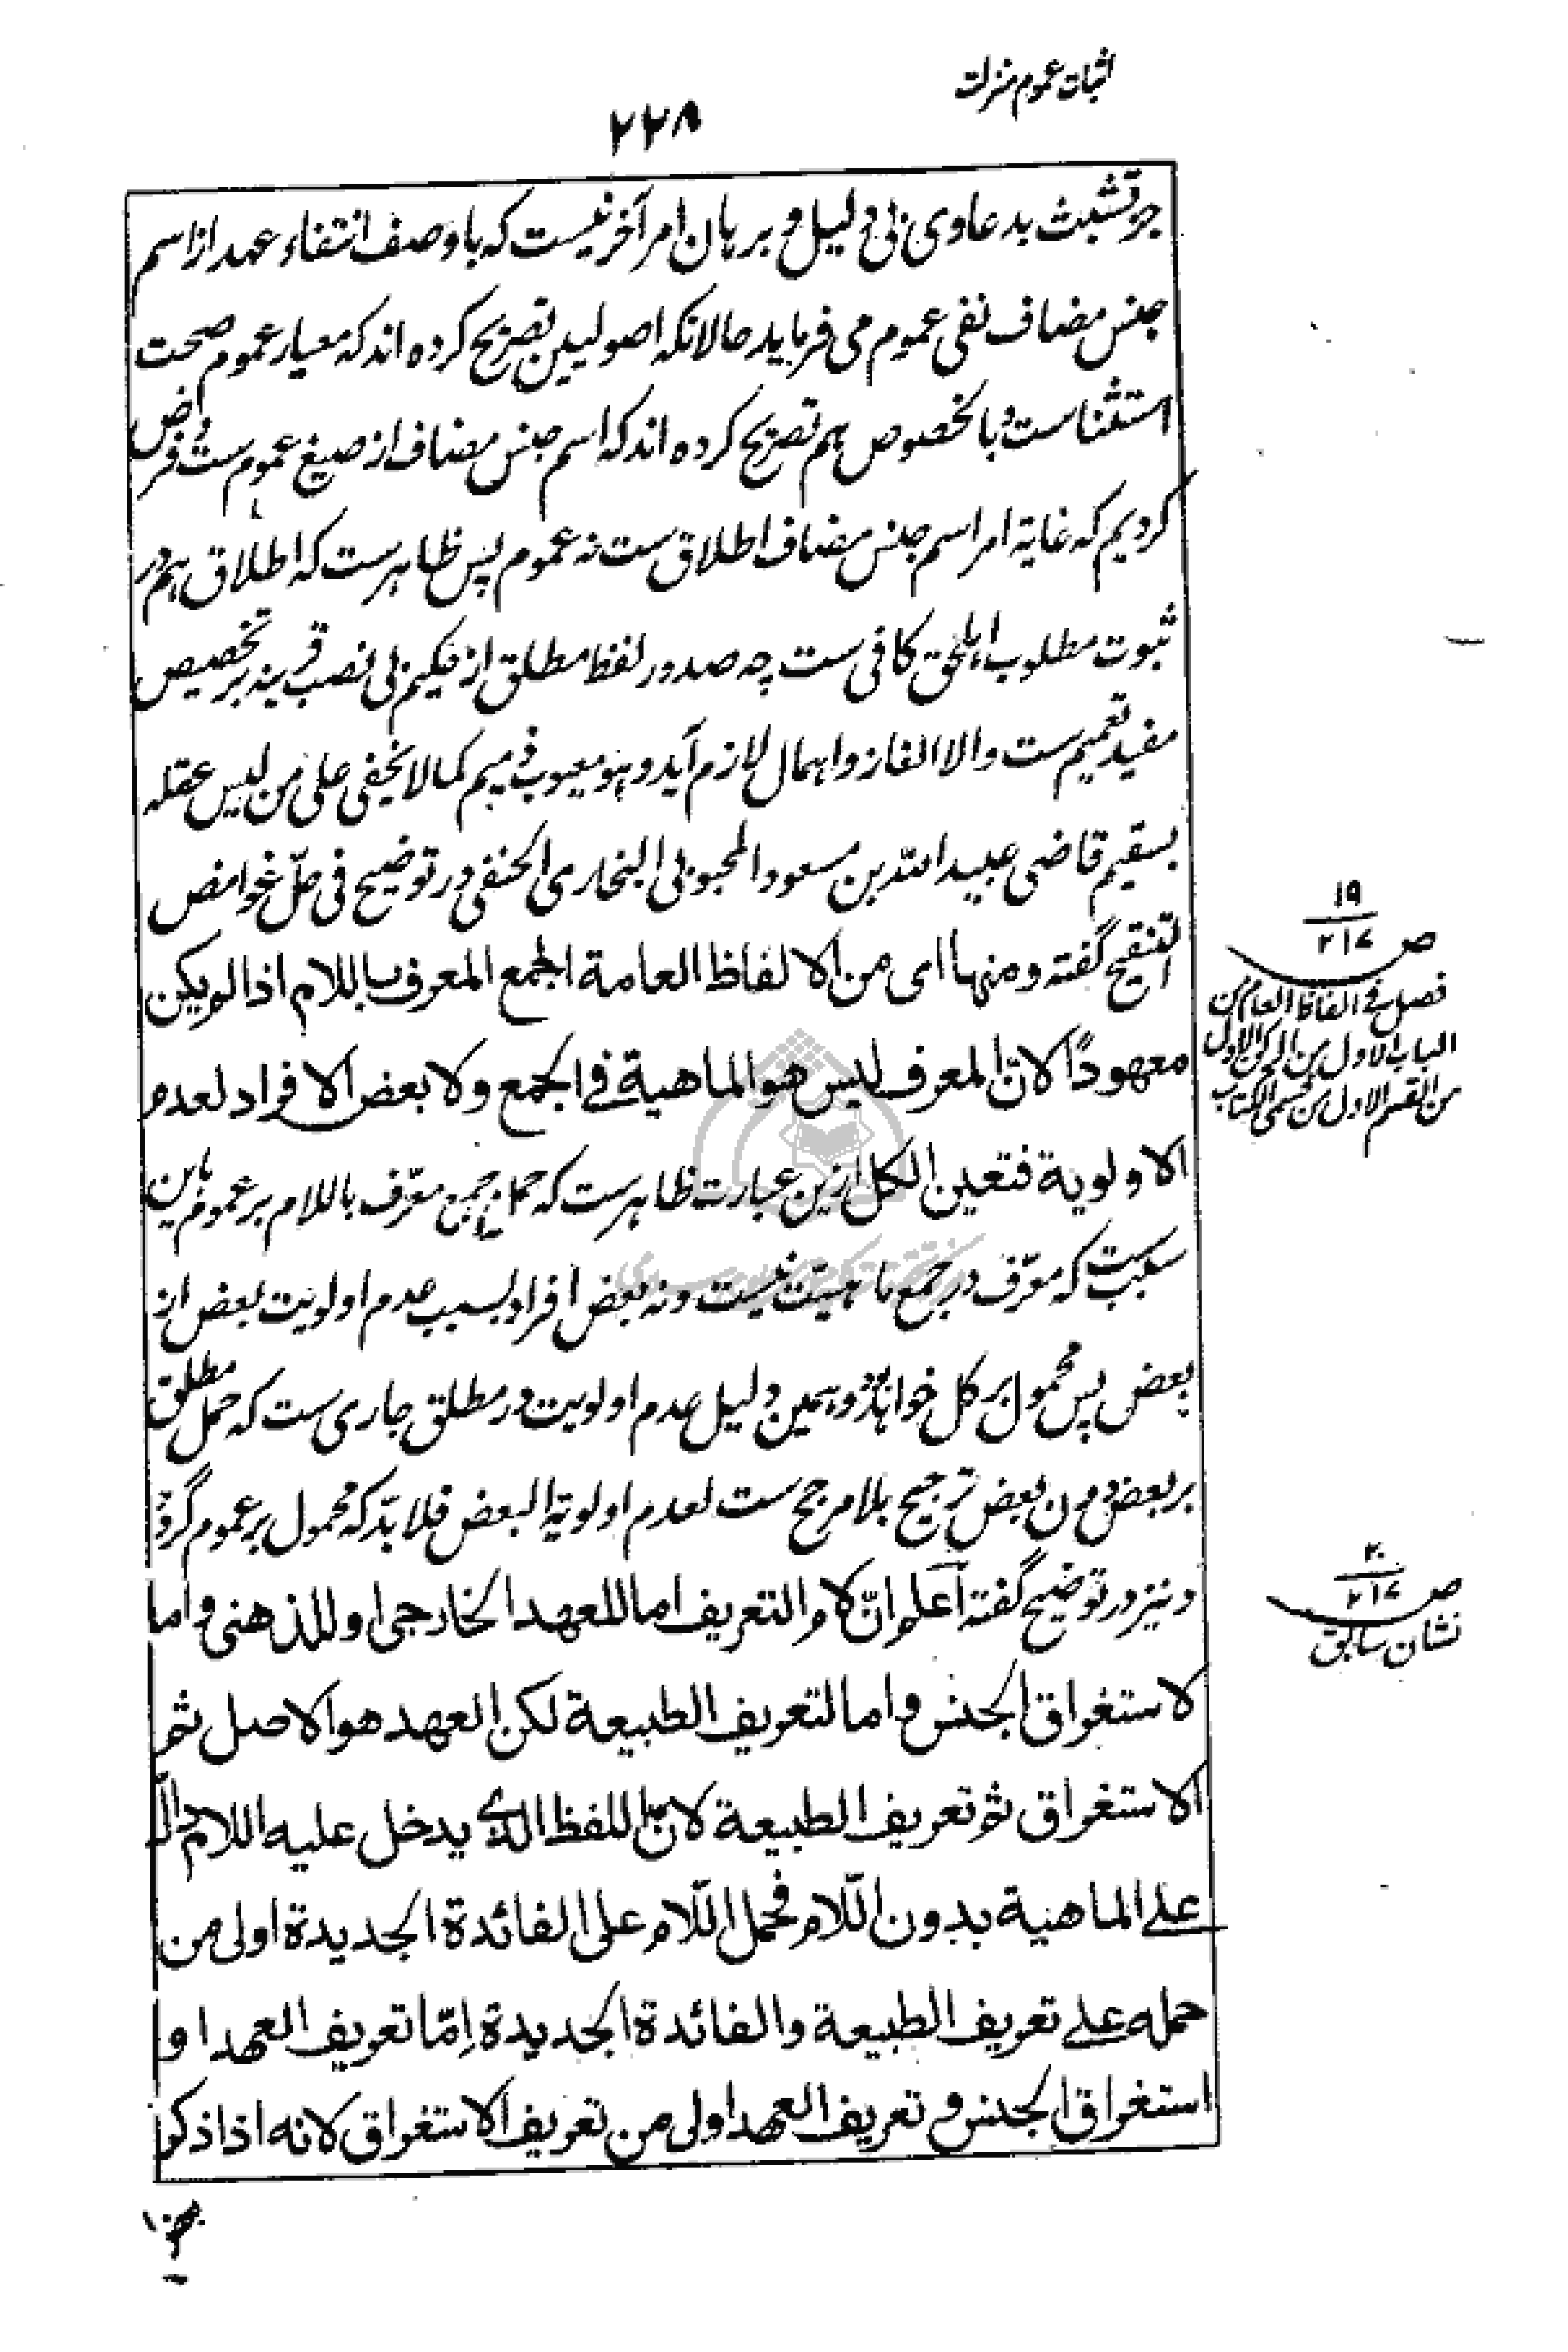 اثبات عموم منزلت
۲۲۸
جز تشبث بدعاوی بی دلیل و برہان امر آخر نیست کہ با وصف انتفاء عہد از اسم
جنس مضاف نفی عموم می فرماید حالانکہ اصولیین تصریح کردہ اند کہ معیار عموم صحت
استثناست و بالخصوص ہم تصریح کردہ اند کہ اسم جنس مضاف از صیغ عموم ست و فرض
کردیم کہ غایۃ امر اسم جنس مضاف اطلاق ست نہ عموم پس ظاہرست کہ اطلاق ہم در
ثبوت مطلوب اہل حق کافی ست چہ صدور لفظ مطلق از حکیم بی نصب قرینہ بر تخصیص
مفید تعمیم ست والا الغاز و اہمال لازم آید و ہو معیوب ذمیم کما لا یخفی علی من لیس عقلہ
بسقیم قاضی عبیداللہ بن مسعود المحبوبی البخاری الحنفی در توضیح فی حلّ غوامض
التنقیح گفتہ ومنها ای من الالفاظ العامة الجمع المعرف باللام اذا لم یکن
معهودًا لانّ المعرف لیس هو الماهیة فی الجمع ولا بعض الافراد لعدم
الاولویة فتعین الکل ازین عبارت ظاہرست کہ حمل جمع معرّف باللام بر عموم باین
سبب ست کہ معرّف در جمع ماہیّت نیست و نہ بعض افراد بسبب عدم اولویت بعض از
بعض پس محمول بر کل خواہد بود و ہمین دلیل عدم اولویت در مطلق جاری ست کہ حمل مطلق
بر بعض دون بعض ترجیح بلا مرجح ست لعدم اولویۃ البعض فلا بدّ کہ محمول بر عموم گردد
و نیز در توضیح گفتہ اعلم انّ لام التعریف اما للعهد الخارجی او للذهنی واما
لاستغراق الجنس واما لتعریف الطبیعة لکن العهد هو الاصل ثم
الاستغراق ثم تعریف الطبیعة لان اللفظ الذی یدخل علیه اللام دالّ
علی الماهیة بدون اللّام فحمل اللّام علی الفائدة الجدیدة اولی من
حمله علی تعریف الطبیعة والفائدة الجدیدة اِمّا تعریف العهد او
استغراق الجنس و تعریف العهد اولی من تعریف الاستغراق لانه اذا ذکر
۱۹
ص ۲۱۷
فصل فی الفاظ العام من
الباب الاول من الرکن الاول
من القسم الاول من قسمی الکتاب
۲۰
ص ۲۱۷
نشان سابق